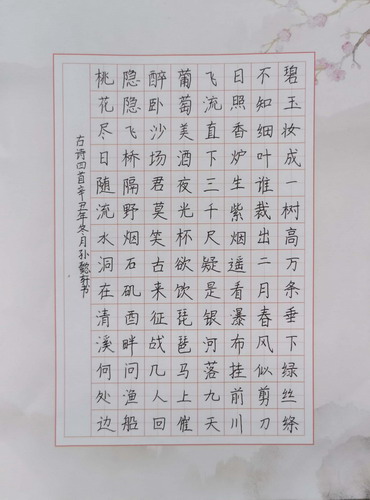 碧玉妆成一树高万条垂下绿丝绦
不知细叶谁裁出二月春风似剪刀
日照香炉生紫烟遥看瀑布挂前川
飞流直下三千尺疑是银河落九天
葡萄美酒夜光杯欲饮琵琶马上催
醉卧沙场君莫笑古来征战几人回
隐隐飞桥隔野烟石矶西畔问渔船
桃花尽日随流水洞在清溪何处边
古诗四首辛丑年冬月孙懿轩书